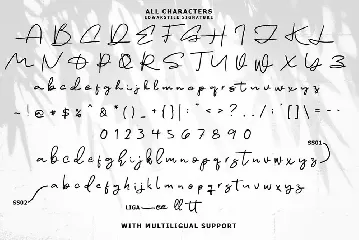 ALL CHARACTERS
EDWARSTILE SIGNATURE
A B C D E F G H I J K L
M N O P Q R S T U V W X Y Z
a b c d e f g h i j k l m n o p q r s t u v w x y z
~ ! @ # $ % ^ & * ( ) _ + { } | : " < > ? . . / ; ' [ ] \ = - -
0 1 2 3 4 5 6 7 8 9 0
SS01
a b c d e f g h i j k l m n o p q r s t u v w x y z
a b c d e f g h i j k l m n o p q r s t u v w x y z
SS02
LIGA ee ll tt
WITH MULTILIGUAL SUPPORT